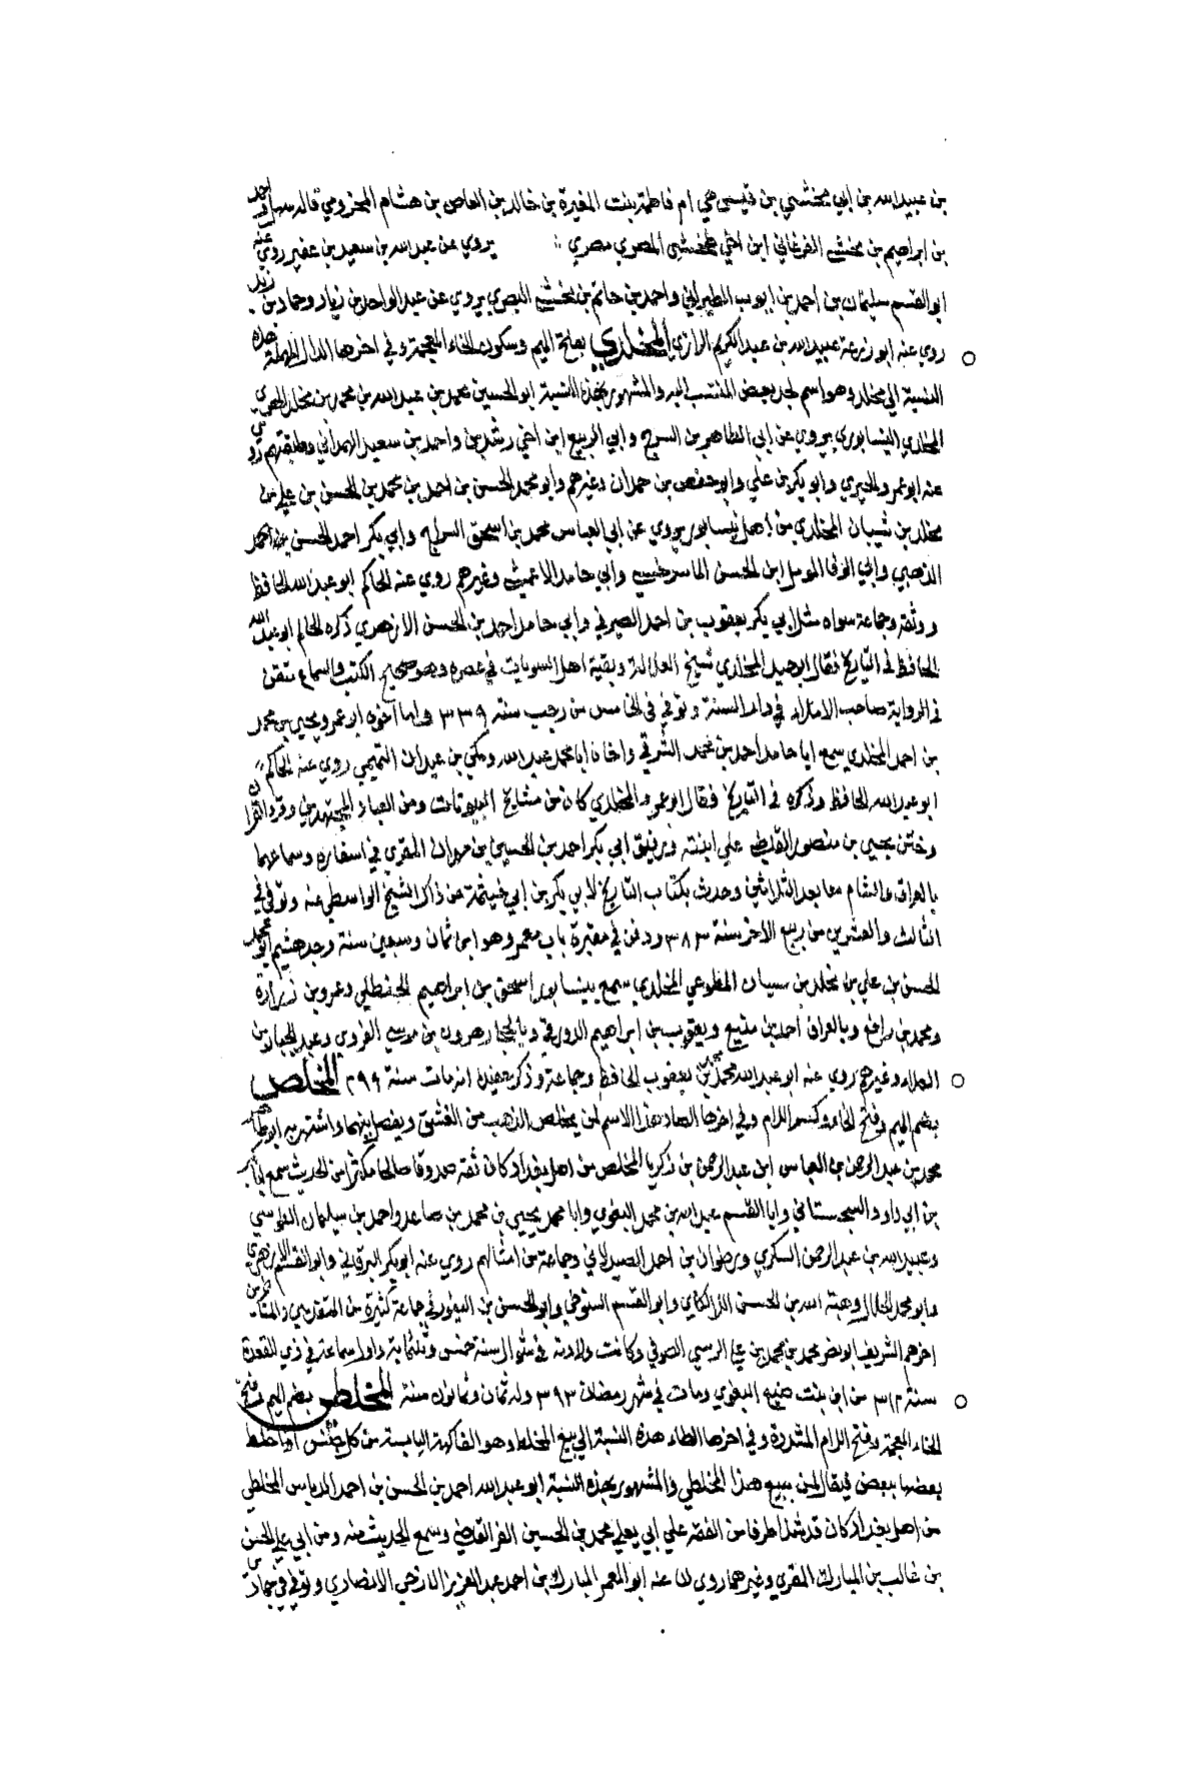 بن عبيد الله بن أبي مخشي بن قيس هي ام فاطمة بنت المغيرة بن خالد بن العاص بن هشام المخزومي قاله واحمد
بن ابراهيم بن مخشي الفرغاني ابن اخي المصري مصري يروي عن عبد الله بن سعيد بن عفير روي عنه
ابو القسم سليمان بن أحمد بن ايوب الطبراني واحمد بن حاتم بن مخشي البصري يروي عن عبد الواحد بن زياد وحماد بن زيد
روي عنه ابو زرعة عبيد الله بن عبد الكريم الرازي المخلدي بفتح الميم وسكون الخاء المعجمة وفي اخرها الدال المهملة هذه
النسبة الي مخلد وهو اسم لجد بعض المنتسب اليه والمشهور بهذه النسبة ابو الحسين محمد بن عبد الله بن محمد بن مخلد الهروي
المخلدي النيسابوري يروي عن ابي الطاهر بن السرح وابي الربيع ابن اخي رشدين واحمد بن سعيد الهمداني وطبقتهم روي
عنه ابو عمرو الحيري وابو بكر بن علي وابو حفص بن حمدان وغيرهم وابو محمد الحسن بن احمد بن محمد بن الحسن بن علي بن
مخلد بن شيبان المخلدي من أهل نيسابور يروي عن ابي العباس محمد بن اسحق السراج وابي بكر احمد الحسن بن احمد
الذهبي وابي الوفا المومل ابن الحسن الماسرجسي وابي حامد الاعمشي وغيرهم روي عنه الحاكم ابو عبد الله الحافظ
وثقه وجماعة سواه مثل ابي بكر يعقوب بن احمد الصيرفي وابي حامد احمد بن الحسن الازهري ذكره الحاكم ابو عبد الله
الحافظ في التاريخ فقال ابو محمد المخلدي شيخ العدالة وبقية اهل البيوتات في عصره وهو صحيح الكتب والسماع متقن
في الرواية صاحب الاملاء في دار السنة وتوفي في الخامس من رجب سنة ٣٣٩ واما اخوه ابو عمرو يحيي بن محمد
بن احمد المخلدي سمع ابا حامد احمد بن محمد الشرقي واخاه ابا محمد عبد الله ومكي بن عبدان التميمي روي عنه الحاكم
ابو عبد الله الحافظ وذكره في التاريخ فقال ابو عمرو المخلدي كان من مشايخ البيوتات ومن العباد المجتهدين وقرا القران
وختن يحيي بن منصور القاضي علي ابنته ورفيق ابي بكر احمد بن الحسين بن مهران المقري في اسفاره وسماعهما
بالعراق والشام معا بعد الثلاثين وحدث بكتاب التاريخ لابي بكر بن ابي خيثمة عن ذاك الشيخ الواسطي عنه وتوفي في
الثالث والعشرين من ربيع الاخر سنة ٣٨٣ ودفن في مقبرة باب معمر وهو ابن ثمان وسبعين سنة وجدهم ابو محمد
الحسن بن علي بن مخلد بن سيبان المطوعي المخلدي سمع بنيسابور اسحق بن ابراهيم الحنظلي وعمرو بن زرارة
ومحمد بن رافع وبالعراق احمد بن منيع ويعقوب بن ابراهيم الدورقي وبالحجاز هرون بن موسي الفروي وعبد الجبار بن
العلاء وغيرهم روي عنه ابو عبد الله محمد بن يعقوب الحافظ وجماعة وذكر حفيده انه مات سنة ٢٩٩ المخلص
بضم الميم وفتح الخاء وكسر اللام وفي اخرها الصاد هذا الاسم لمن يخلص الذهب من الغش ويفصل بينهما واشتهر به ابو طاهر
محمد بن عبد الرحمن بن العباس ابن عبد الرحمن بن زكريا المخلص من اهل بغداد كان ثقة صدوقا صالحا مكثرا من الحديث سمع ابا بكر
بن ابي داود السجستاني وابا القسم عبد الله بن محمد البغوي وابا محمد يحيي بن محمد بن صاعد واحمد بن سليمان الطوسي
وعبيد الله بن عبد الرحمن السكري ورضوان بن احمد الصيدلاني وجماعة من امثالهم روي عنه ابو بكر البرقاني وابو القسم الازهري
وابو محمد الخلال وهبة الله بن الحسن اللالكائي وابو القسم التنوخي وابو الحسين بن النقور في جماعة كثيرة من المتقدمين والمتاخرين
اخرهم الشريف ابو نصر محمد بن محمد بن علي الزينبي الصوفي وكانت ولادته في شوال سنة خمس وثلثماية واول سماعه في ذي القعدة
سنة ٣١٢ من ابن بنت منيع البغوي ومات في شهر رمضان ٣٩٣ وله ثمان وثمانون سنة المخلطي بضم الميم وفتح
الخاء المعجمة وفتح اللام المشددة وفي اخرها الطاء هذه النسبة الي بيع المخلط وهو الفاكهة اليابسة من كل جنس اذا خلط
بعضها ببعض فيقال لمن يبيع هذا المخلطي والمشهور بهذه النسبة ابو عبد الله احمد بن الحسن بن احمد الدباس المخلطي
من اهل بغداد كان قد شدا طرفا من الفقه علي ابي يعلي محمد بن الحسين الفرا القاضي وسمع الحديث منه ومن ابي علي الحسن
بن غالب بن المبارك المقري وغيرهما روي لنا عنه ابو المعمر المبارك بن احمد عبد العزيز الازجي الانصاري وتوفي في جمادي